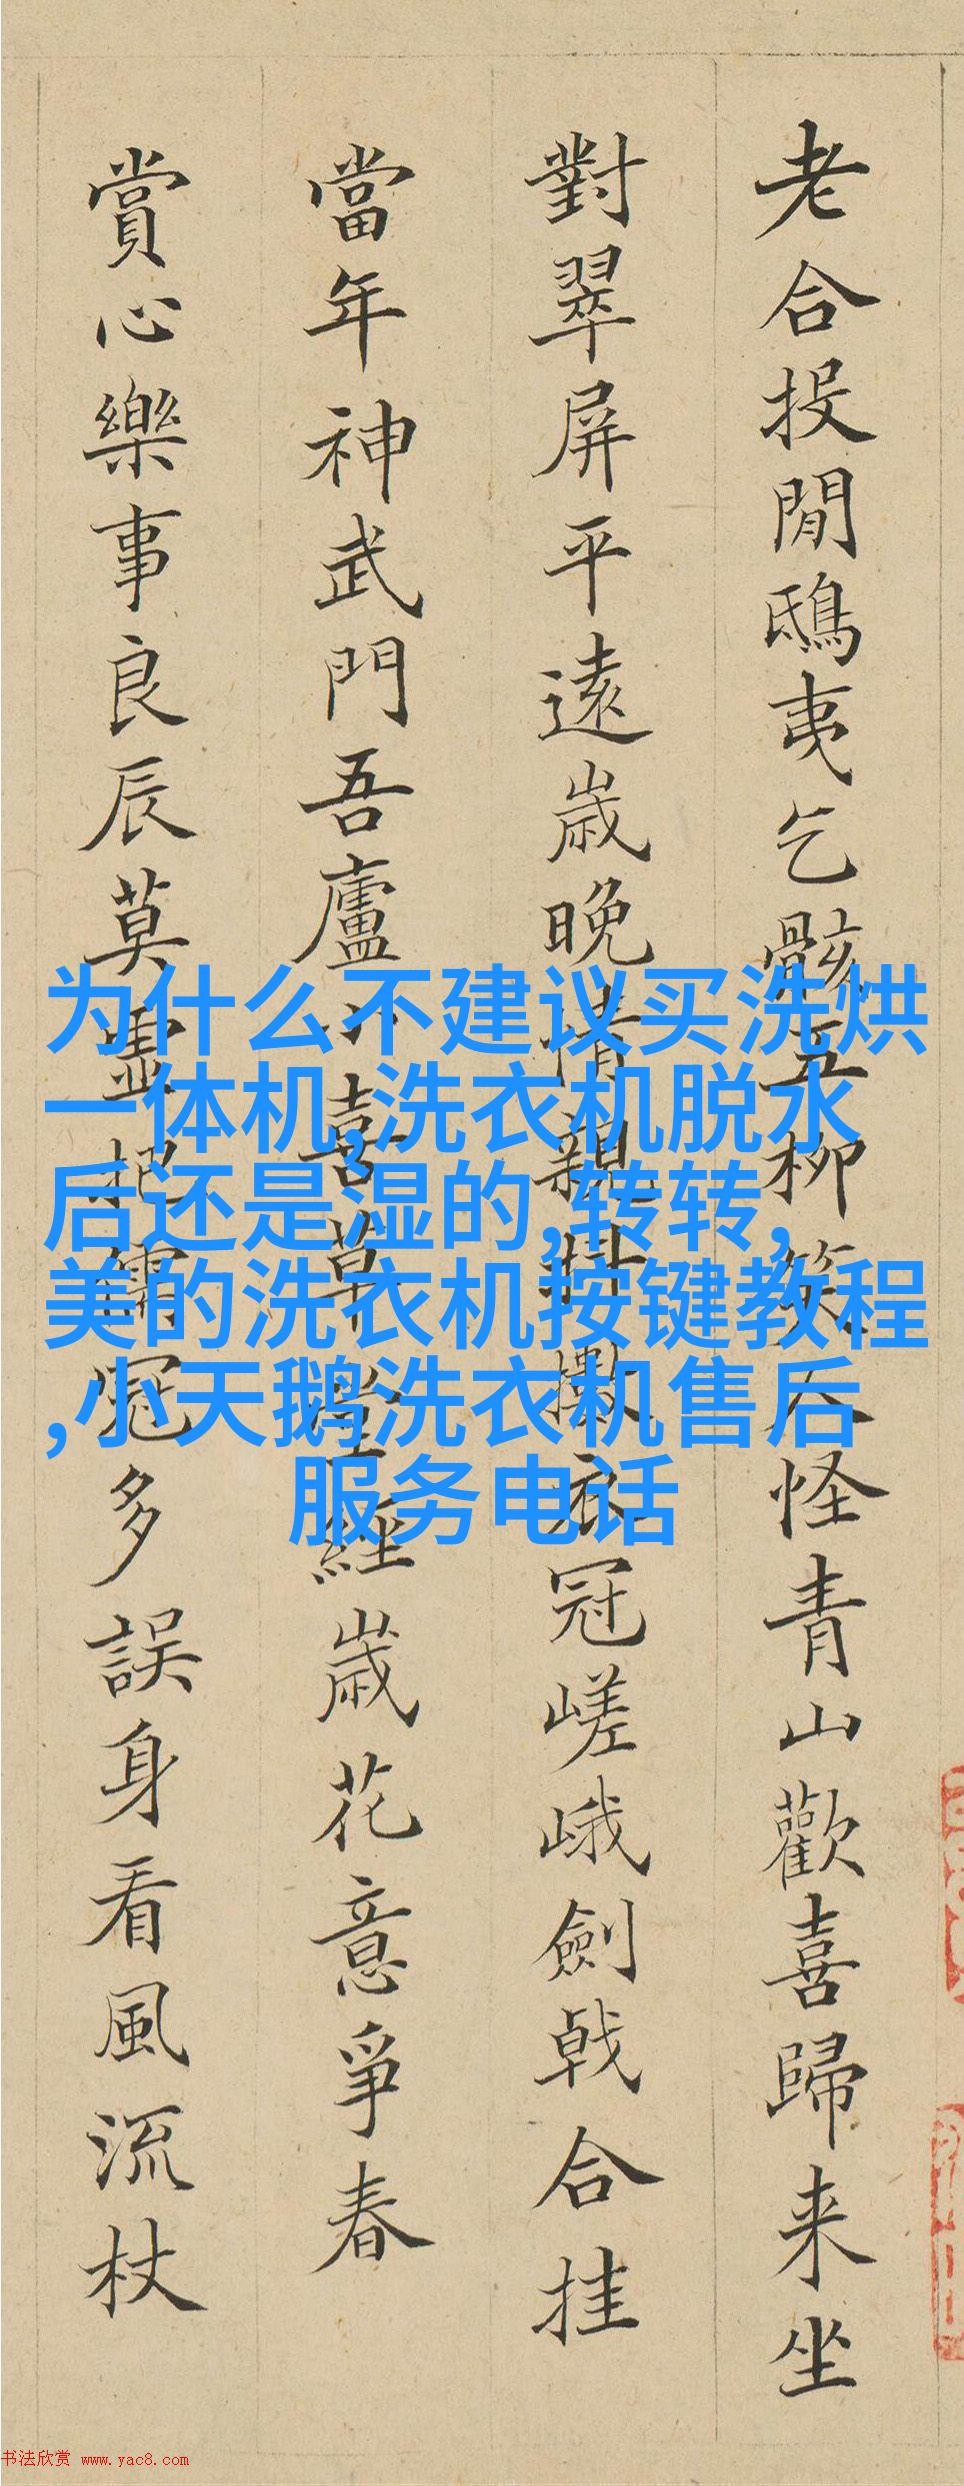 老合投閒鴟夷乞骸五柳笑人怪青山歡喜歸来坐
對翠屏平遠歲晚情親掛衣冠嵯峨劍戟合挂
當年神武門吾廬小喜草堂經歲花意爭春
賞心樂事良辰莫虛把儒冠多誤身看風流杖
为什么不建议买洗烘
一体机,洗衣机脱水
后还是湿的,转转,
美的洗衣机按键教程
,小天鹅洗衣机售后
服务电话
书法欣赏 www.yac8.com